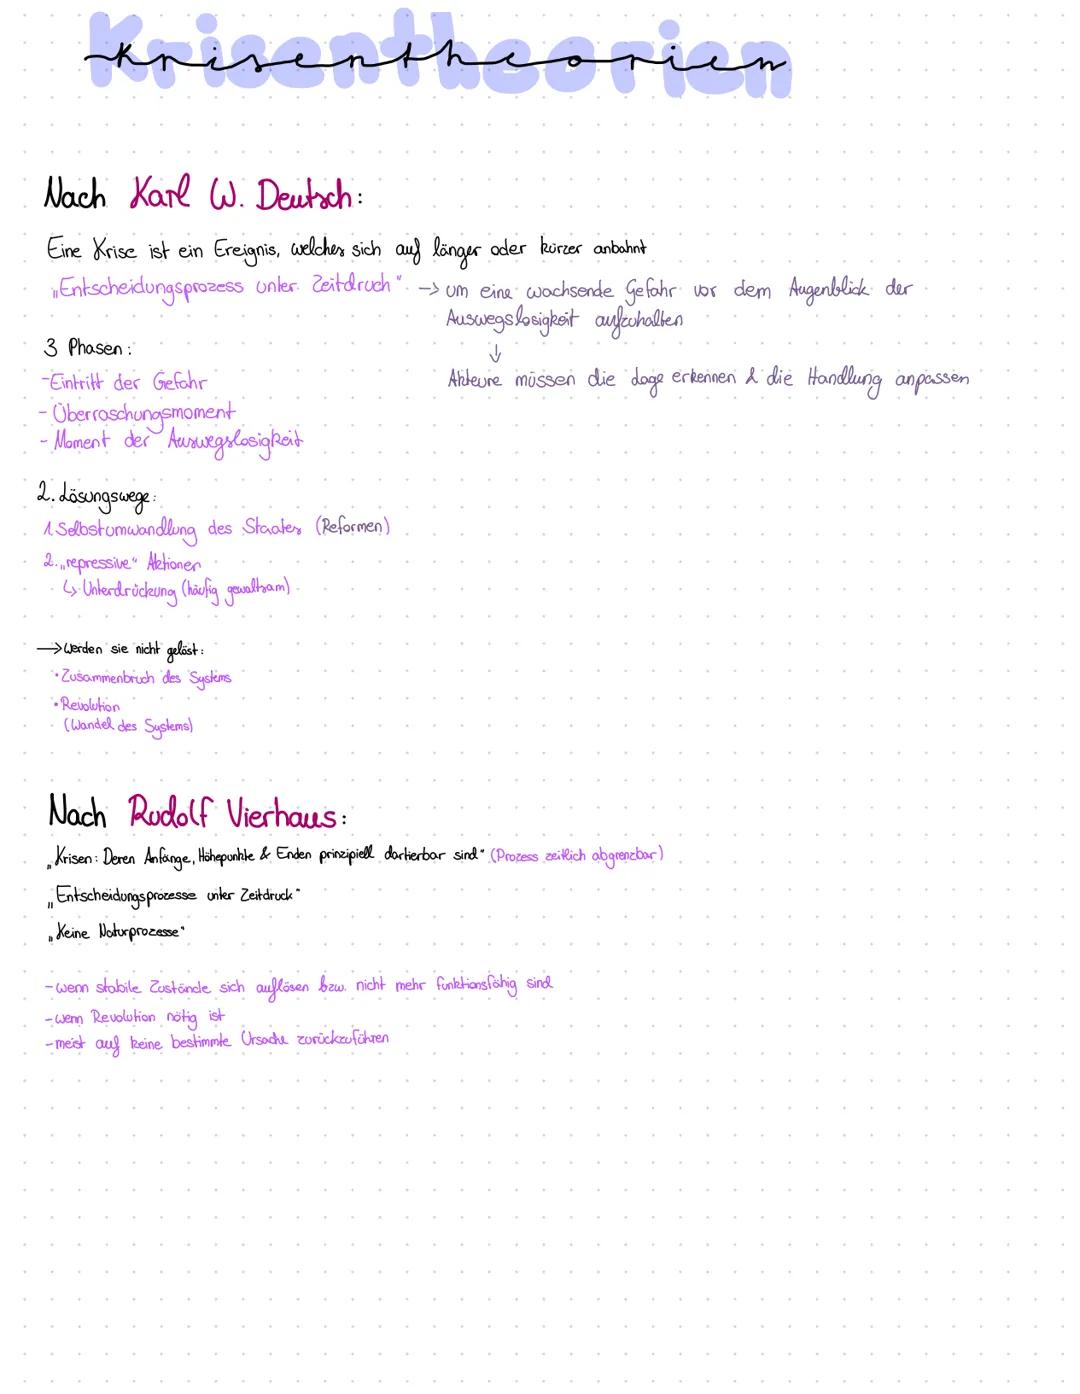 Krisentheorien
Nach Karl W. Deutsch:
Eine Krise ist ein Ereignis, welches sich auf länger oder kürzer anbahnt
„Entscheidungsprozess unter Zeitdruck" → um eine wachsende Gefahr vor dem Augenblick der
Auswegslosigkeit aufzuhalten
↓
Akteure müssen die Lage erkennen & die Handlung anpassen
3 Phasen:
-Eintritt der Gefahr
- Überraschungsmoment
- Moment der Auswegslosigkeit
2. Lösungswege:
1. Selbstumwandlung des Staates (Reformen)
2. „repressive" Aktionen
↳ Unterdrückung (häufig gewaltsam)
→ Werden sie nicht gelöst:
• Zusammenbruch des Systems
• Revolution
(Wandel des Systems)
Nach Rudolf Vierhaus:
„Krisen: Deren Anfänge, Höhepunkte & Enden prinzipiell dartierbar sind" (Prozess zeitlich abgrenzbar)
„Entscheidungsprozesse unter Zeitdruck"
„Keine Naturprozesse"
-wenn stabile Zustände sich auflösen bzw. nicht mehr funktionsfähig sind
-wenn Revolution nötig ist
-meist auf keine bestimmte Ursache zurückzuführen